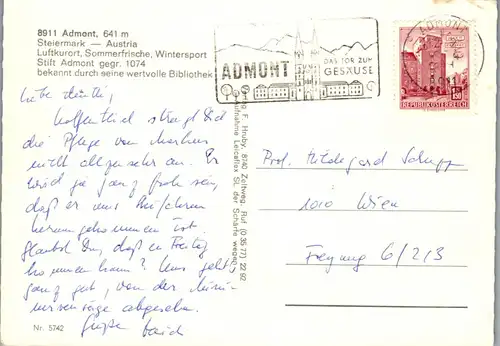 8911 Admont, 641 m
Steiermark — Austria
Luftkurort, Sommerfrische, Wintersport
Stift Admont gegr. 1074
bekannt durch seine wertvolle Bibliothek
ADMONT
DAS TOR ZUM
GESÄUSE
ADMONT
8911
REPUBLIK ÖSTERREICH
1.50
Liebe
hoffentlich strengt Dich
die Pflege von
nicht allzusehr an. Er
wird ja ganz froh sein,
daß er aus
herausgekommen ist.
Glaubst Du, daß er Freitag
kommen kann? Uns geht
ganz gut, von der
abgesehen.
Grüße
Nr. 5742
Verlag F. Hruby, 8740 Zeltweg, Ruf (0 35 77) 22 92
Aufnahme Leicaflex SL der Schärfe wegen
Prof. Hildegard
1010 Wien
Freyung 6/2/3